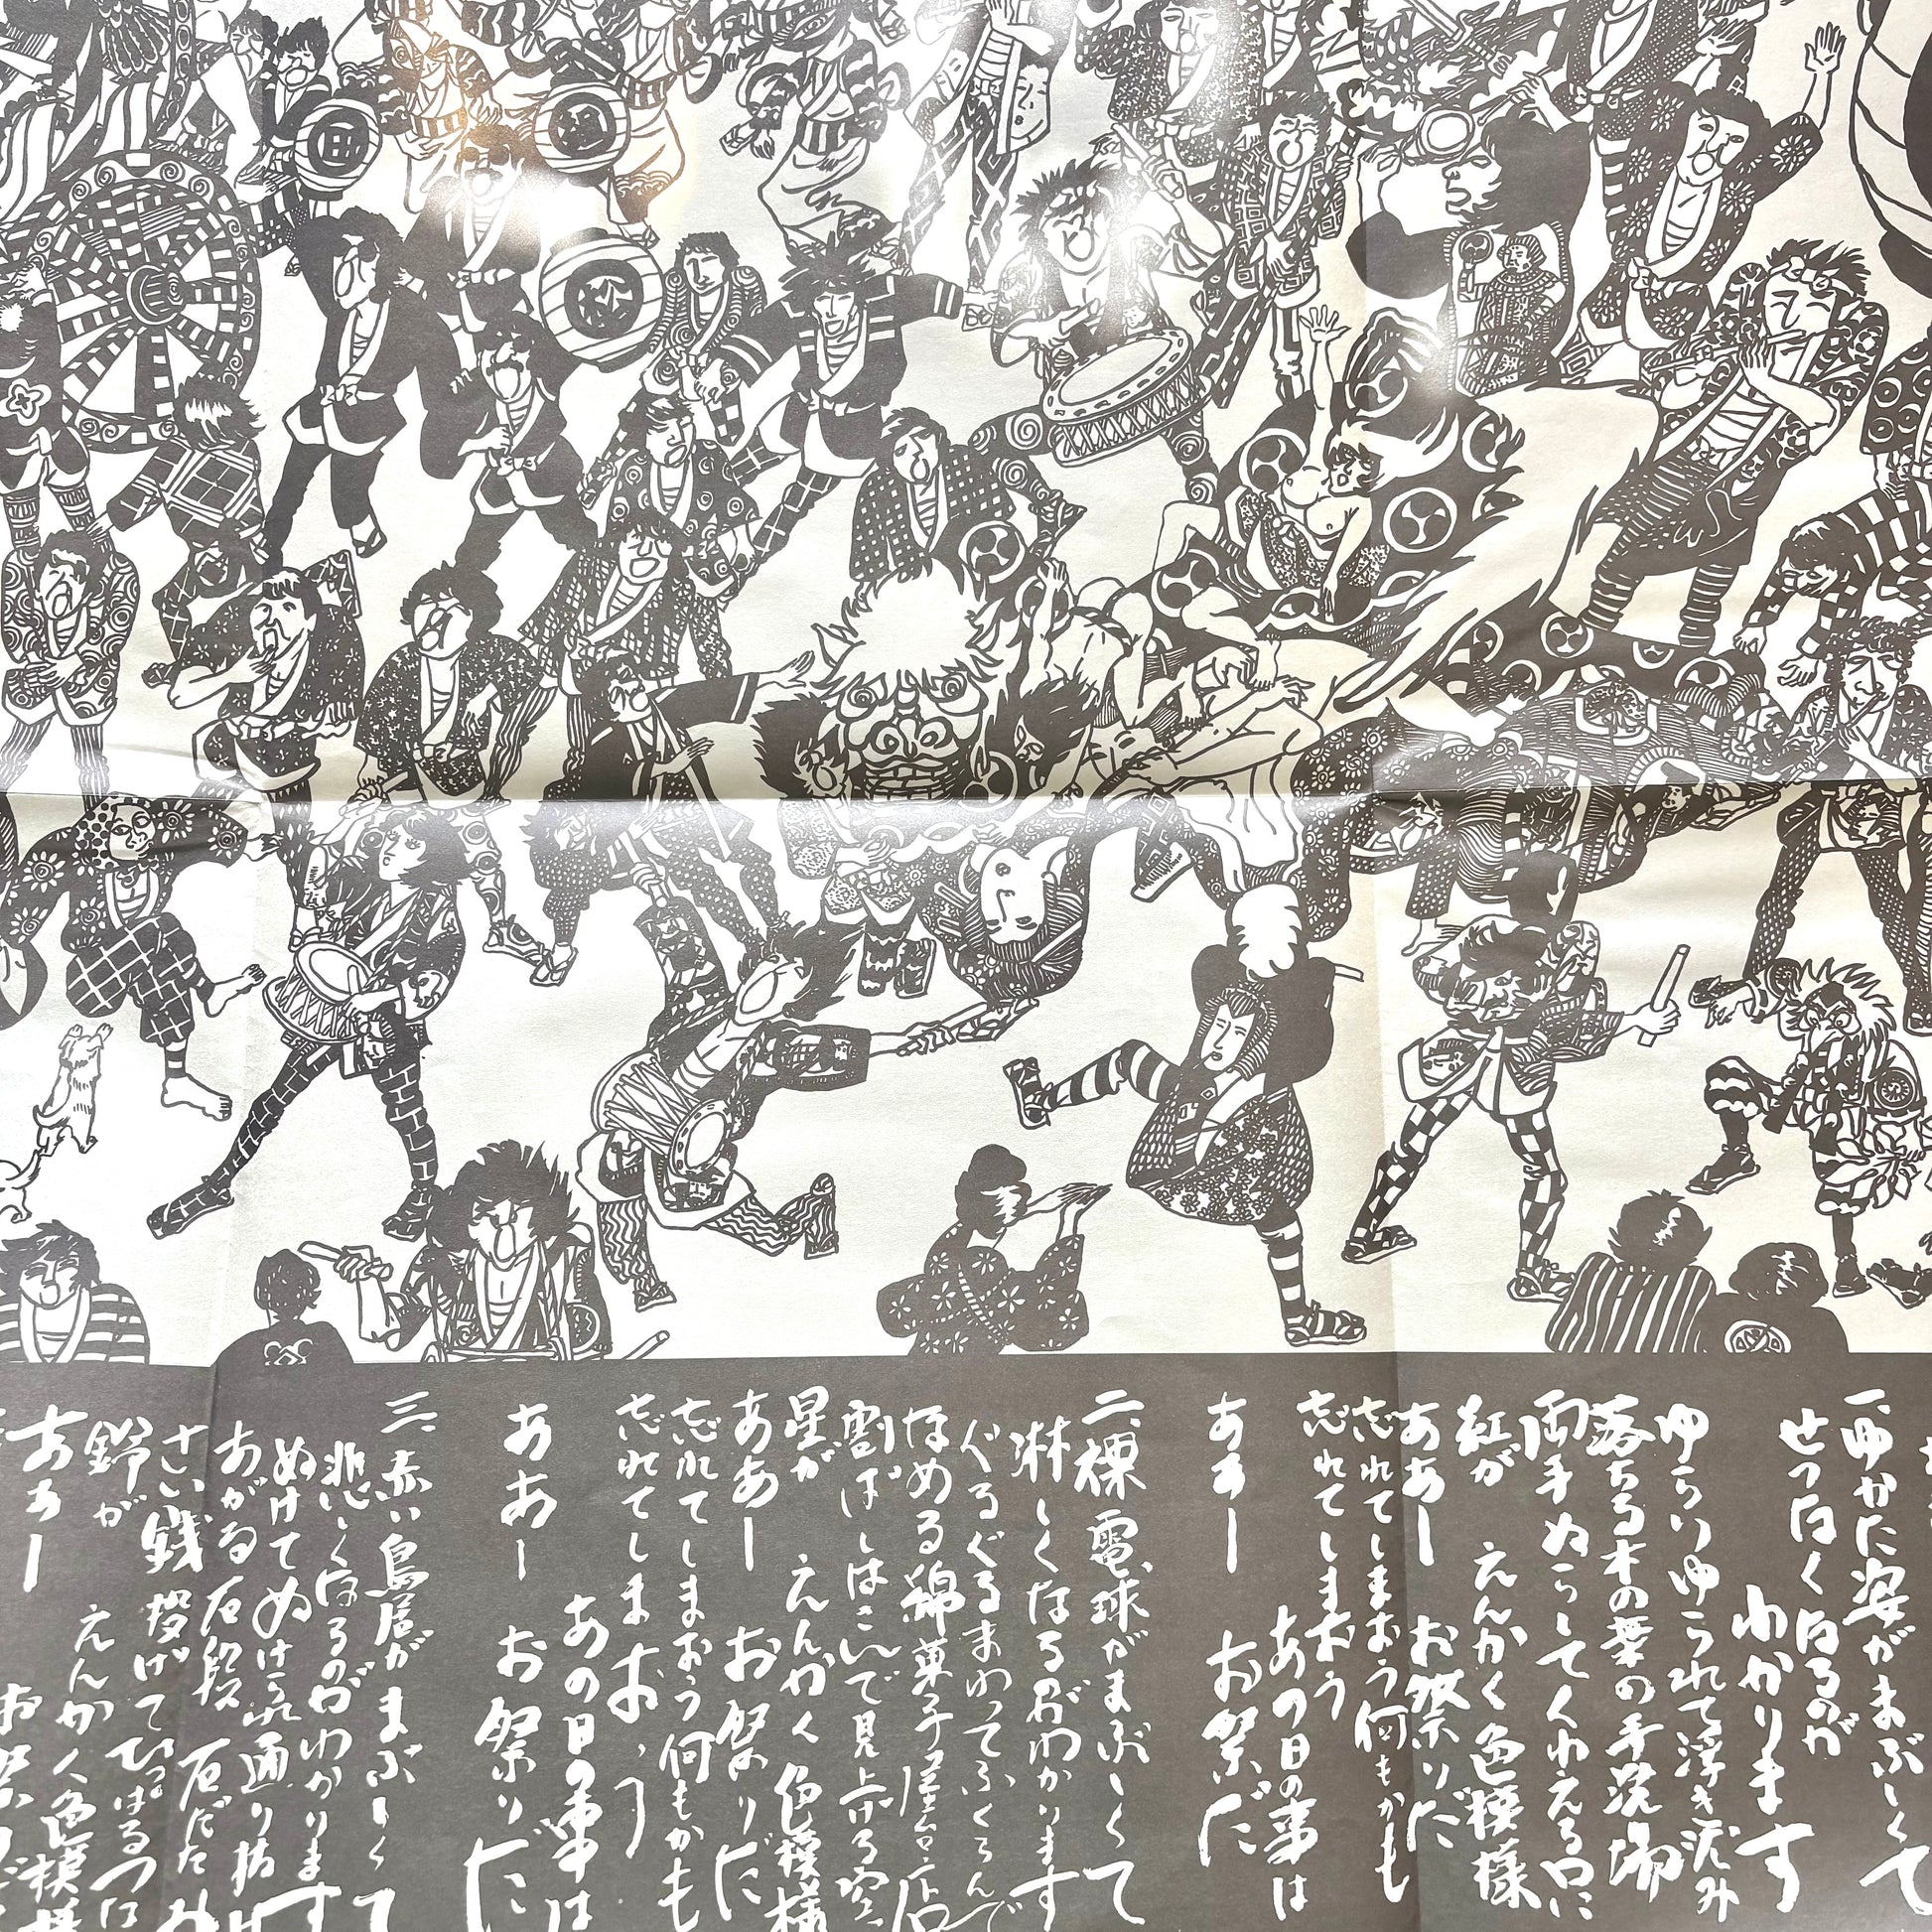 松
一、ゆかた姿がまぶしくて
せつなくなるのが
わかります
ゆらりゆられて浮き沈み
落ちる木の葉の手洗場
両手ぬらしてくわえる口に
紅が えんかく色模様
ああー お祭りだ
忘れてしまおう何もかも
忘れてしまおう
あの日の事は
ああー お祭りだ
二、裸電球がまぶしくて
淋しくなるのがわかります
ぐるぐるまわってふくらんで
なめる綿菓子屋台店
割ばしはこんで見上げる空
星が えんかく色模様
ああー お祭りだ
忘れてしまおう何もかも
忘れてしまおう
あの日の事は
ああー お祭りだ
三、赤い鳥居がまぶしくて
悲しくなるのがわかります
ぬけてぬけられ通り抜け
あがる石段 石だたみ
さい銭投げてひっぱるつな
鈴が えんかく色模様
ああー お祭りだ